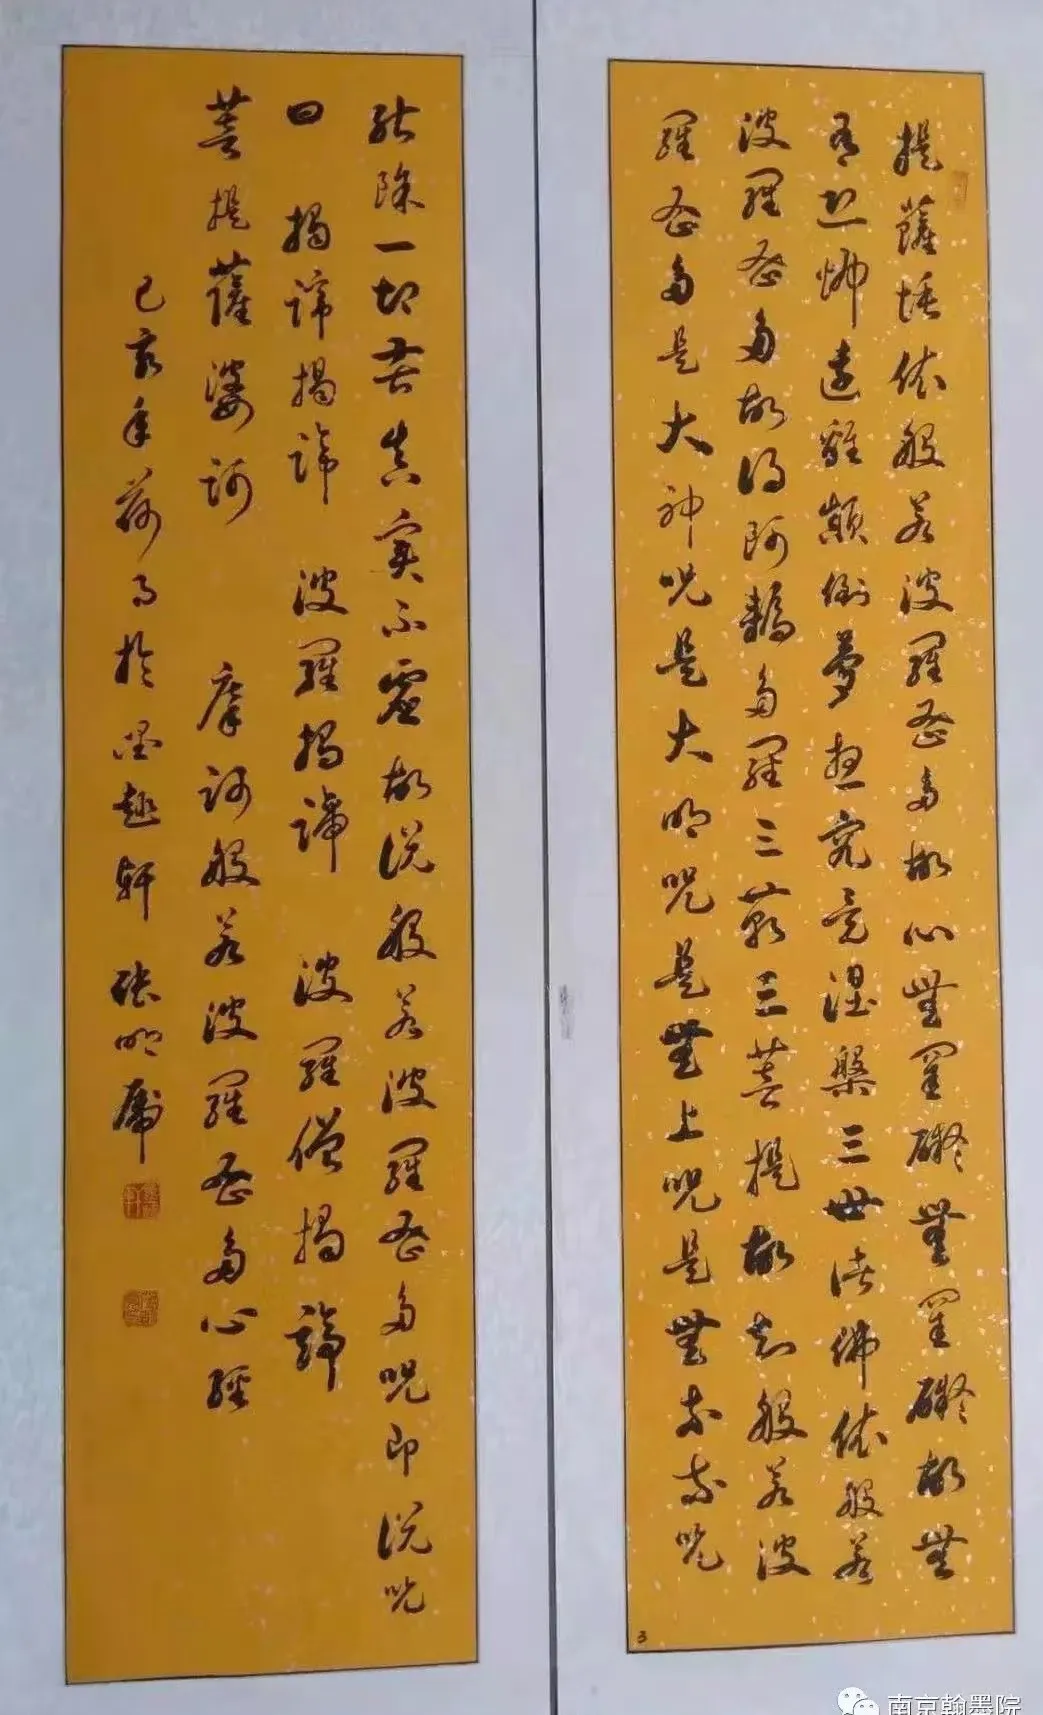 提薩埵依般若波羅蜜多故心無罣礙無罣礙故無
有恐怖遠離顛倒夢想究竟涅槃三世諸佛依般若
波羅蜜多故得阿耨多羅三藐三菩提故知般若波
羅蜜多是大神咒是大明咒是無上咒是無等等咒
3
能除一切苦真實不虛故說般若波羅蜜多咒即說咒
曰 揭諦揭諦 波羅揭諦 波羅僧揭諦
菩提薩婆訶 摩訶般若波羅蜜多心經
己亥年荷月於墨趣軒 張明
南京翰墨院